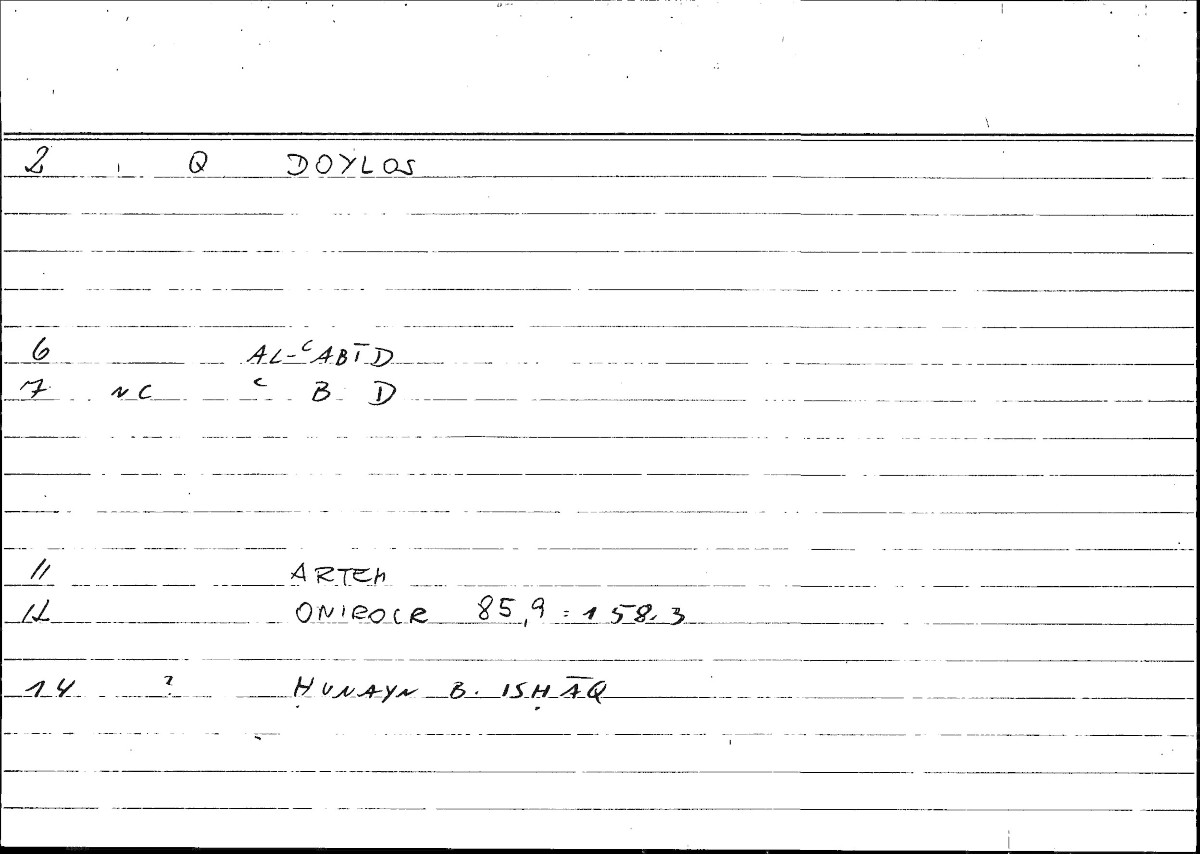 2 Q DOYLOS
6 AL-ʿABĪD
7 NC ʿ B D
11 ARTEM
12 ONIROCR 85,9 = 158.3
14 ? ḤUNAYN B. ISḤĀQ